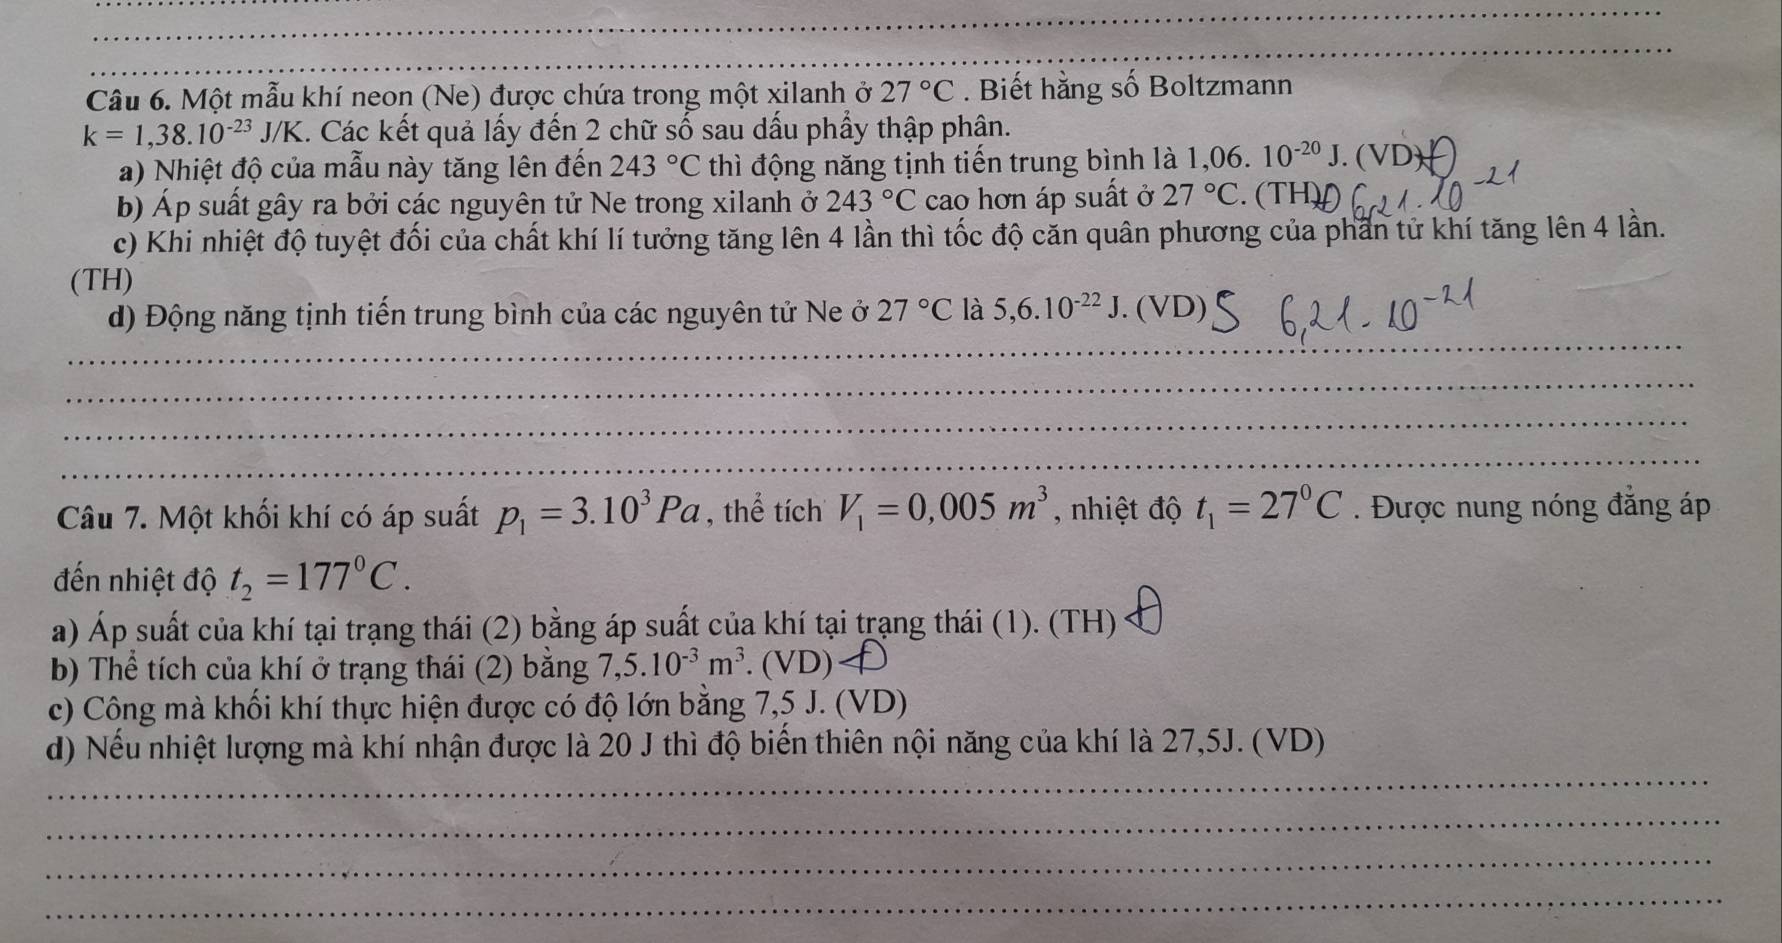 Câu 6. Một mẫu khí neon (Ne) được chứa trong một xilanh ở 27 °C . Biết hằng số Boltzmann
k = 1,38.10⁻²³ J/K. Các kết quả lấy đến 2 chữ số sau dấu phẩy thập phân.
a) Nhiệt độ của mẫu này tăng lên đến 243 °C thì động năng tịnh tiến trung bình là 1,06. 10⁻²⁰ J. (VD) Đ
b) Áp suất gây ra bởi các nguyên tử Ne trong xilanh ở 243 °C cao hơn áp suất ở 27 °C. (TH) Đ 6,21.10⁻²¹
c) Khi nhiệt độ tuyệt đối của chất khí lí tưởng tăng lên 4 lần thì tốc độ căn quân phương của phân tử khí tăng lên 4 lần.
(TH)
d) Động năng tịnh tiến trung bình của các nguyên tử Ne ở 27 °C là 5,6.10⁻²² J. (VD) S 6,21.10⁻²¹
Câu 7. Một khối khí có áp suất p₁ = 3.10³ Pa, thể tích V₁ = 0,005 m³, nhiệt độ t₁ = 27⁰C . Được nung nóng đẳng áp
đến nhiệt độ t₂ = 177⁰C .
a) Áp suất của khí tại trạng thái (2) bằng áp suất của khí tại trạng thái (1). (TH) Đ
b) Thể tích của khí ở trạng thái (2) bằng 7,5.10⁻³ m³. (VD) Đ
c) Công mà khối khí thực hiện được có độ lớn bằng 7,5 J. (VD)
d) Nếu nhiệt lượng mà khí nhận được là 20 J thì độ biến thiên nội năng của khí là 27,5J. (VD)